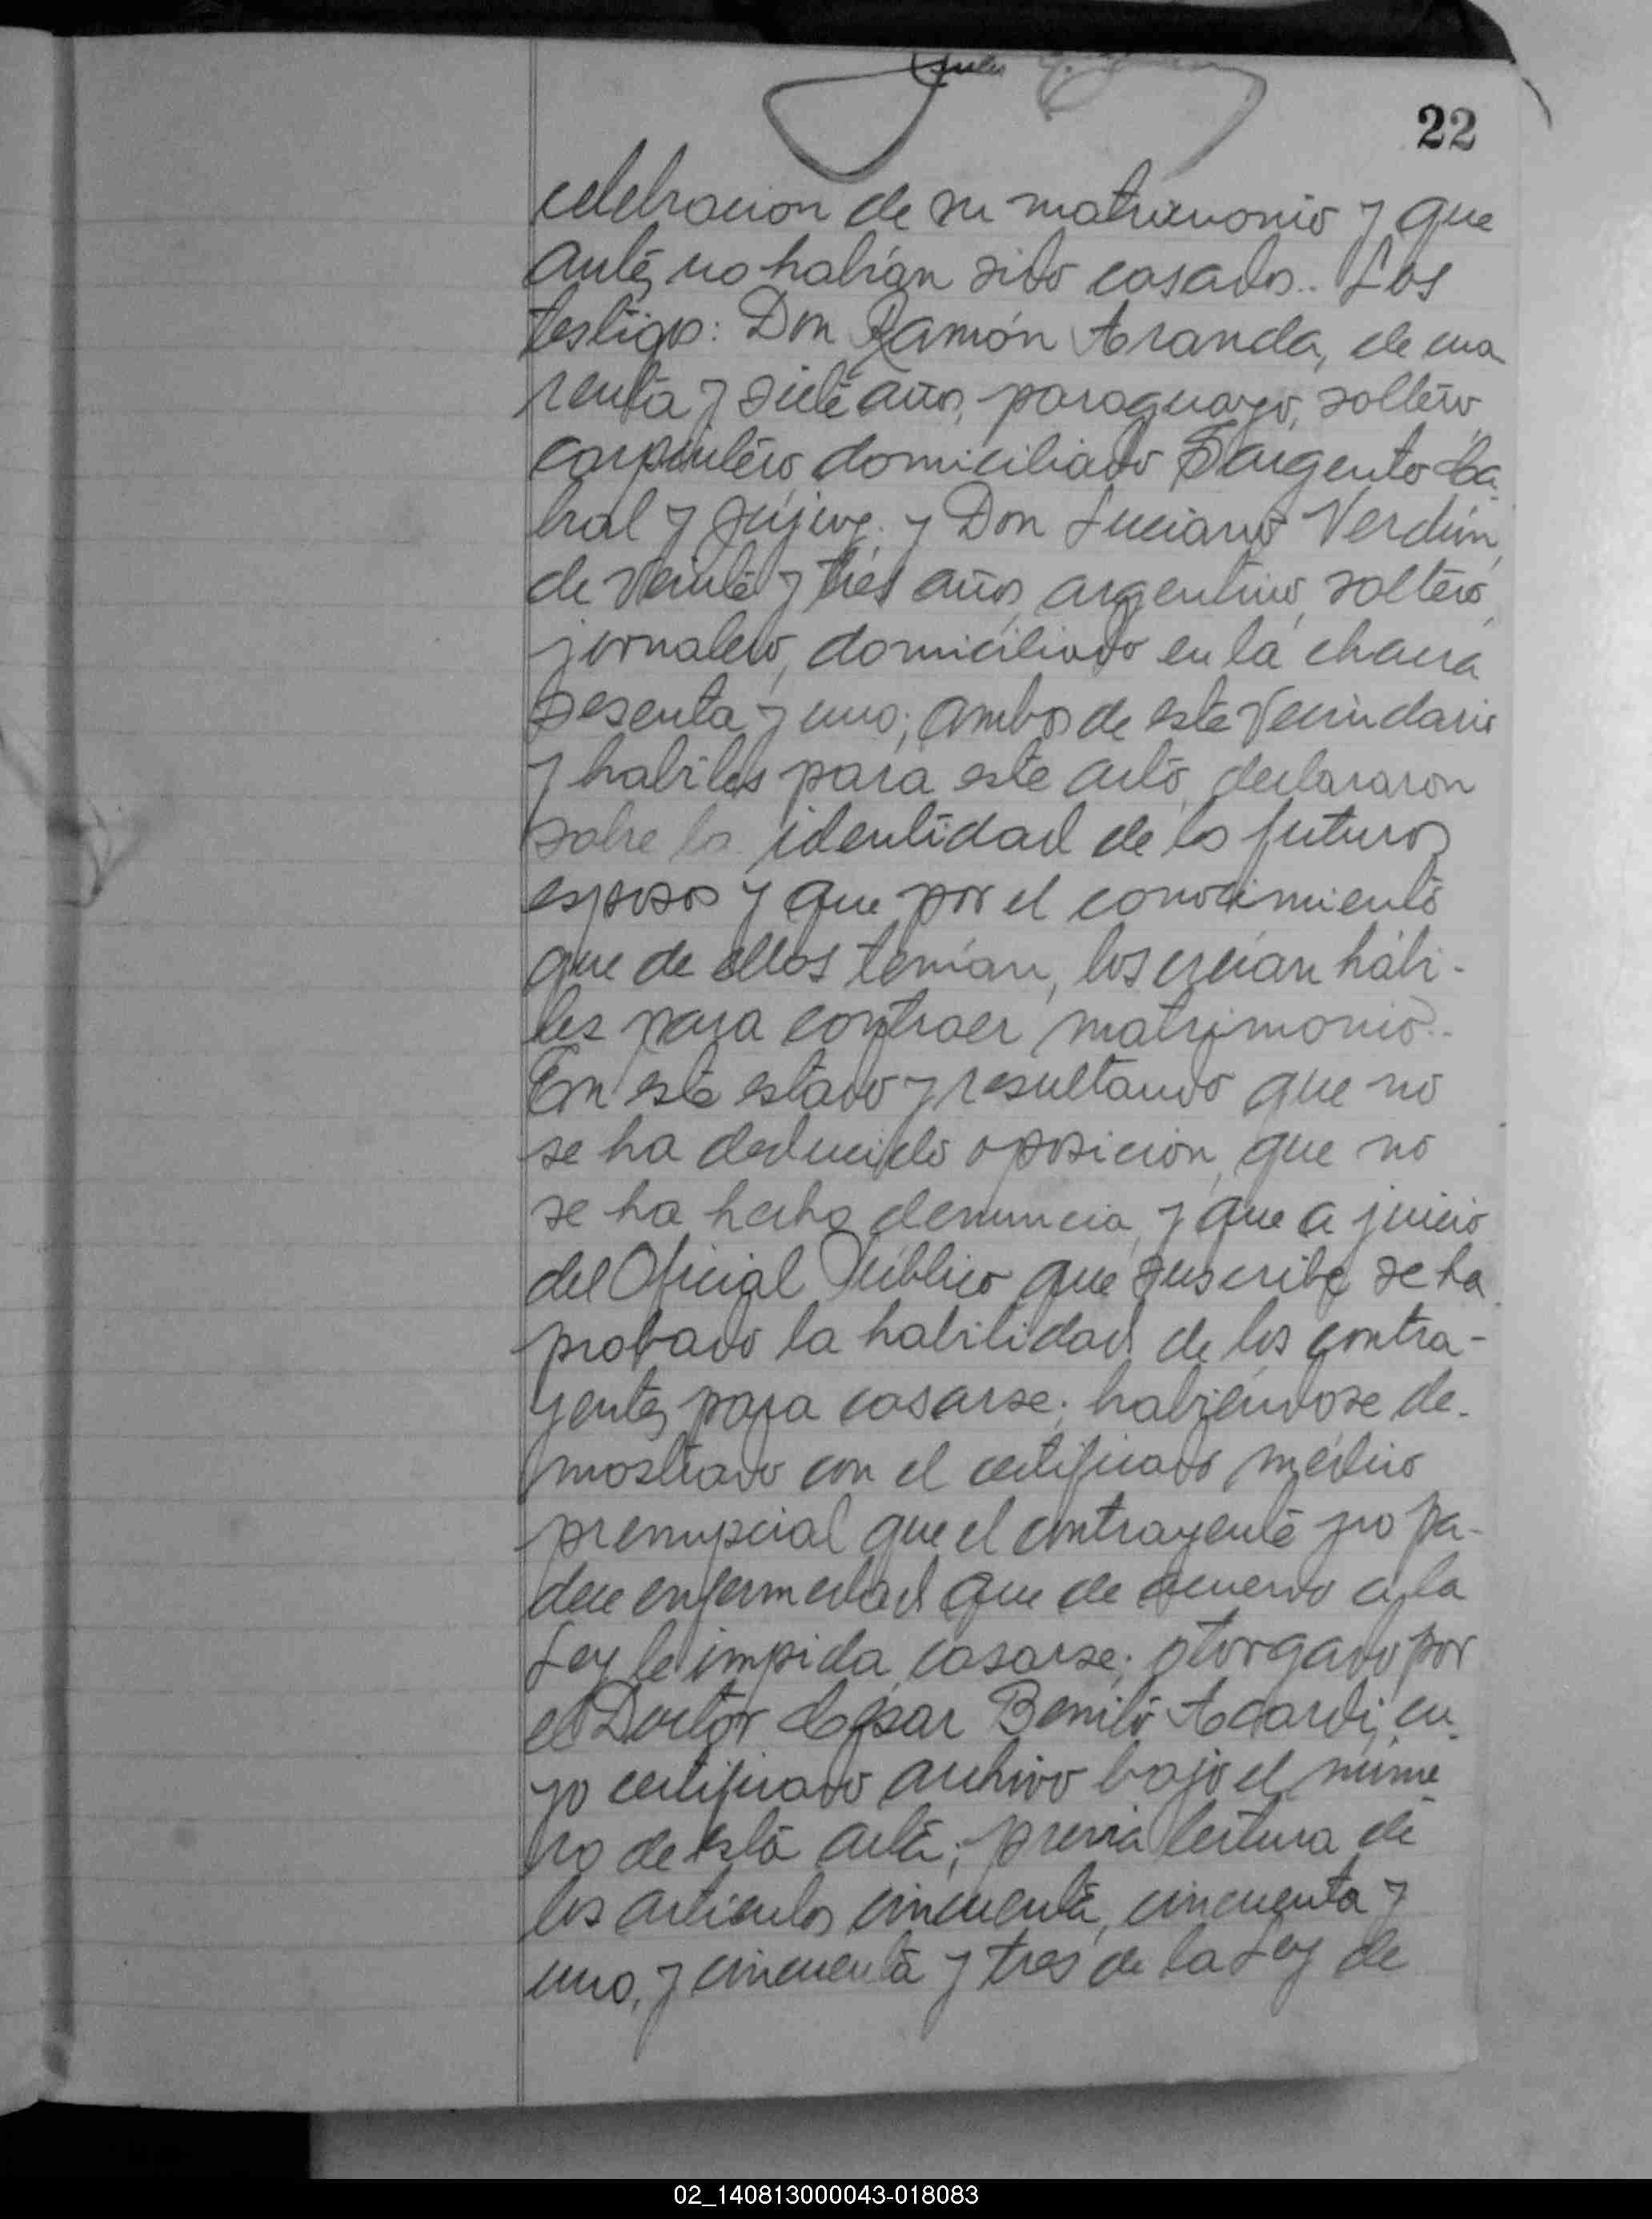 22
celebracion de su matrimonio y que
antes no habían sido casados.. Los
testigos: Don Ramón Aranda, de cua
renta y siete años, paraguayo, soltero,
carpintero, domiciliado Sargento Ca-
bral y Jujuy; y Don Luciano Verdún,
de veinte y tres años, argentino, soltero,
jornalero, domiciliado en la chacra
sesenta y uno; ambos de este vecindario
y habiles para este acto, declararon
sobre la identidad de los futuros
esposos y que por el conocimiento
que de ellos tenían, los creían hábi-
les para contraer matrimonio.-
En este estado y resultando que no
se ha deducido oposicion, que no
se ha hecho denuncia, y que a juicio
del Oficial Público que suscribe se ha
probado la habilidad de los contra-
yentes para casarse; habiéndose de-
mostrado con el certificado médico
prenupcial que el contrayente no pa-
dece enfermedad que de acuerdo a la
Ley le impida casarse; otorgado por
el Doctor César Benito Acardi, cu-
yo certificado archivo bajo el núme-
ro de esta acta; previa lectura de
los articulos cincuenta, cincuenta y
uno, y cincuenta y tres de la Ley de
02_140813000043-018083